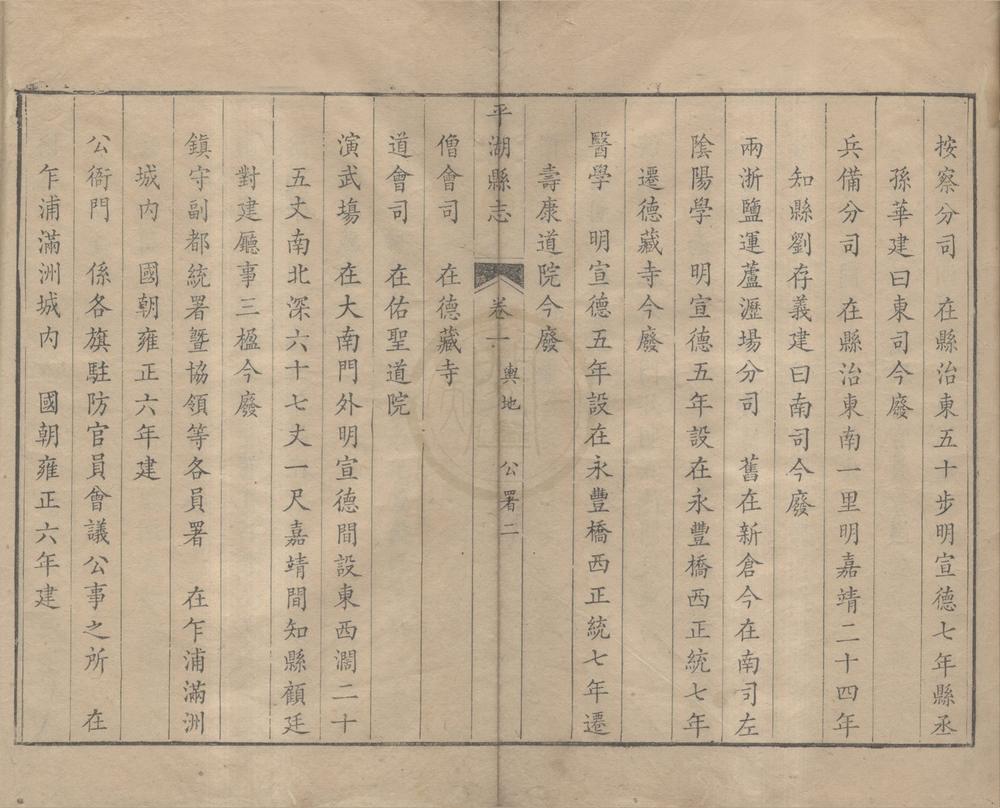 按察分司　在縣治東五十步明宣德七年縣丞
孫華建曰東司今廢
兵備分司　在縣治東南一里明嘉靖二十四年
知縣劉存義建曰南司今廢
兩浙鹽運蘆瀝場分司　舊在新倉今在南司左
陰陽學　明宣德五年設在永豐橋西正統七年
遷德藏寺今廢
醫學　明宣德五年設在永豐橋西正統七年遷
壽康道院今廢
平湖縣志　卷一　輿地　公署二
僧會司　在德藏寺
道會司　在佑聖道院
演武塲　在大南門外明宣德間設東西濶二十
五丈南北深六十七丈一尺嘉靖間知縣顧廷
對建廳事三楹今廢
鎮守副都統署暨協領等各員署　在乍浦滿洲
城內　國朝雍正六年建
公衙門　係各旗駐防官員會議公事之所　在
乍浦滿洲城內　國朝雍正六年建